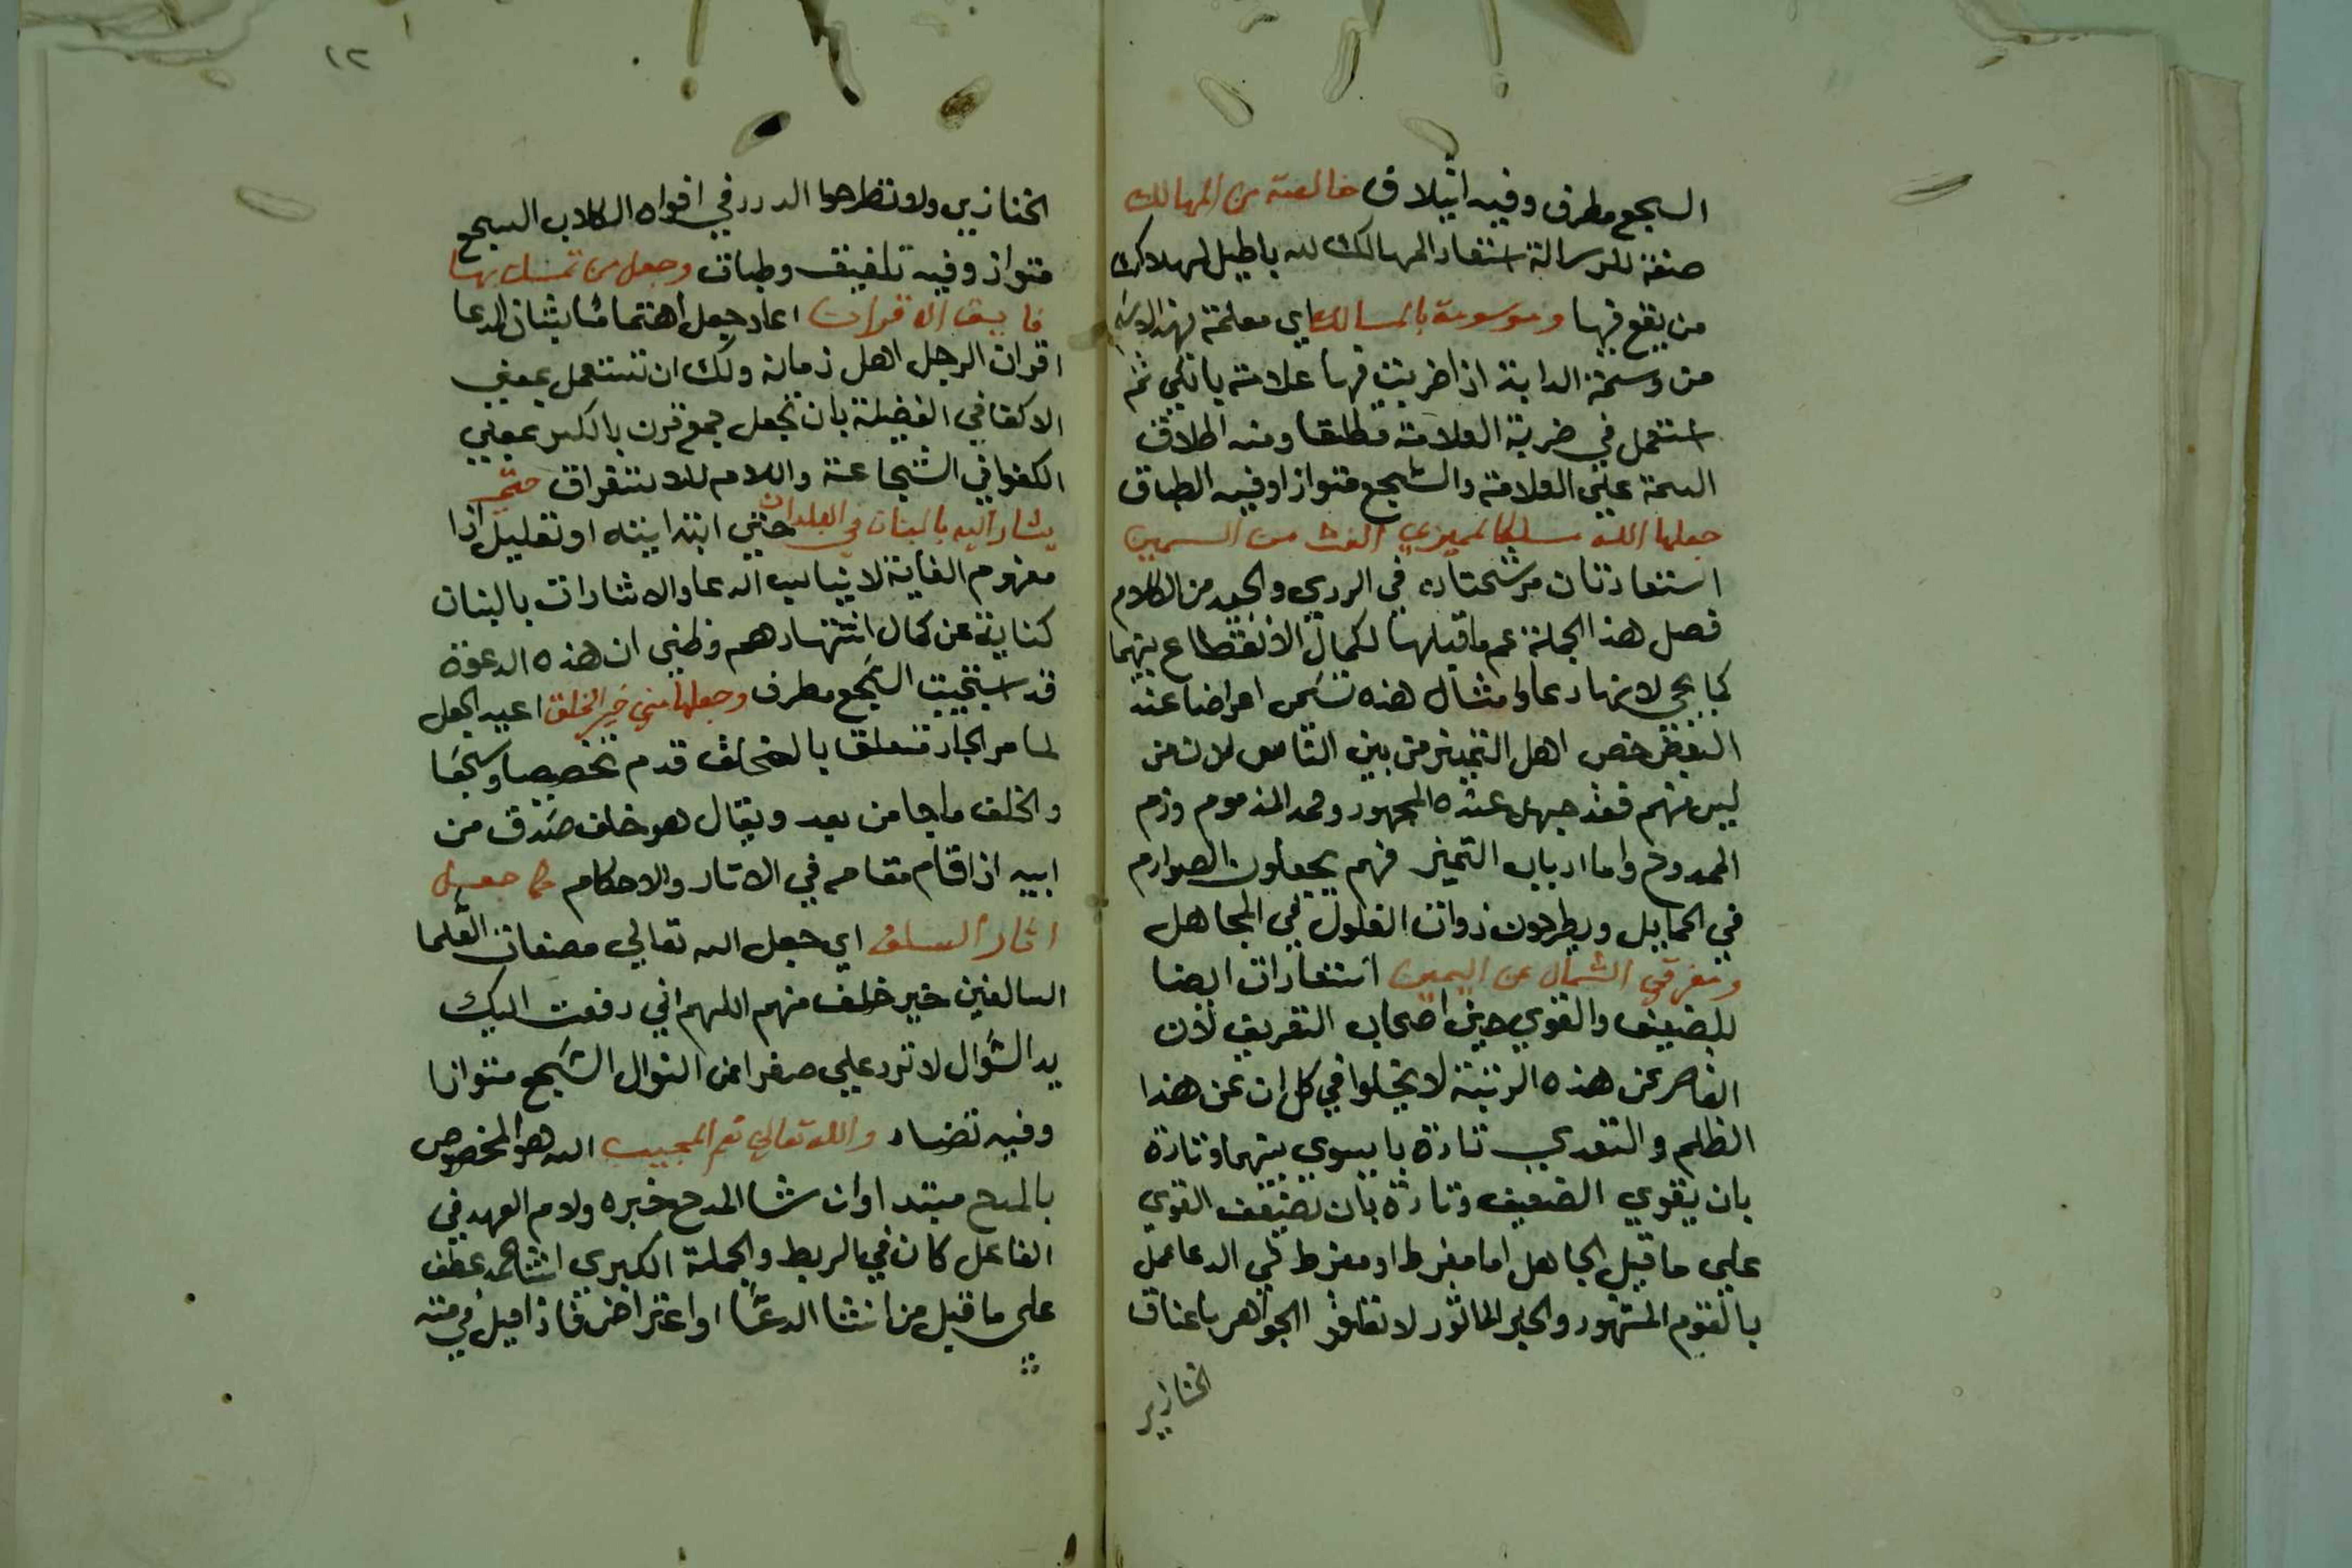 السجع مطرف وفيه ائتلاف خالصة من المهالك
صفة للرسالة استعار المهالك للاباطيل لهلاك
من يقع فيها وموسومة بالمسالك اي معلمة بهذا الاسم
من وسمة الدابة اذا ضربت فيها علامة بالكي ثم
استعمل في ضربة العلامة مطلقا ومنه اطلاق
السمة علي العلامة والسجع متوازا وفيه الطباق
جعلها الله مسلكا لمميزي الغث من السمين
استعارتان مرشحتان في الردي والجيد من الكلام
فصل هذا الجملة عم ما قبلها لكمال الانقطاع بينهما
كما يجي لانها دعا وامثال هذه تسمي اعراضا عند
البعض خص اهل التمييز من بين الناس لان من
ليس منهم فقد جهل عنده المجهور ومحمد المذموم وذم
الممدوح واما ارباب التميز فهم يجعلون الصوارم
في الحمايل ويطرحون ذوات الفلول في المجاهل
ومفرقي الشمال عن اليمين استعارات ايضا
للضعيف والقوي حيز اصحاب التفريق لان
القاصر عن هذه الرتبة لا يخلوا في كل ان عن هذا
الظلم والتعدي تارة بايسوي بينهما وتارة
بان يقوي الضعيف وتارة بان يضعف القوي
علي ما قيل الجاهل اما مفرط او مفرط في الدعا عمل
بالقوم المشهور والخبر الماثور لا تعلقو الجواهر باعناق
الخنازير
١٢
الخنازير ولا تطرحوا الدرر في افواه الكلاب السجع
متواز وفيه تلفيف وطباق وجعل من تمسك بها
فايق الاقران اعاد جعل اهتماما بشان الدعا
اقران الرجل اهل زمانه ولك ان تستعمل بمعني
الاكفا في الفضيلة بان تجعل جمع قرن بالكسر بمعني
الكفوا في الشجاعة واللام للاستغراق حتي
يشار اليه بالبنان في البلدان حتي ابتدايته او تعليل اذا
مفهوم الغاية لا يناسب الدعا والاشارات بالبنان
كناية عن كمال اشتهارهم وظني ان هذه الدعوة
قد استجيبت السجع مطرف وجعلها مني خير الخلف اعيد الجعل
لما مر الجار متعلق بالخلف قدم تخصيصا وسجعا
والخلف ما جا من بعد ويقال هو خلف صدق من
ابيه اذا قام مقامه في الاثار والاحكام كما جعل
اثار السلف اي جعل الله تعالي مصنفات العلما
السالفين خير خلف منهم اللهم اني رفعت اليك
يد السوال لا ترد علي صفرا من النوال السجع متوازا
وفيه تضاد والله تعالي نعم المجيب الله هو المخصوص
بالمدح مبتدا وانشا المدح خبره ولام العهد في
الفاعل كان في الربط والجملة الكبري انشا حمد عطف
علي ما قبل من انشا الدعا او اعتراض فاذا قيل في متنه